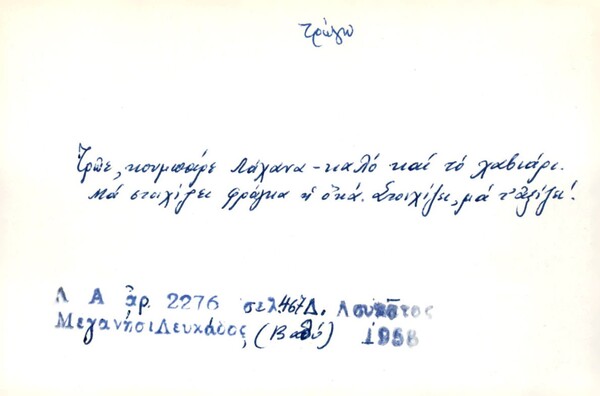 τρώγω
Τρῶε, κουμπάρε λάχανα - καλό καί τό χαβιάρι.
Μά στοιχίζει φράγκα ἡ ὀκά. Στοιχίζει, μά τ' ἀξίζει!
Λ Α ἀρ. 2276 σελ. 467 Δ. Λουκᾶτος
Μεγανήσι Λευκάδος, (Βαθύ) 1958